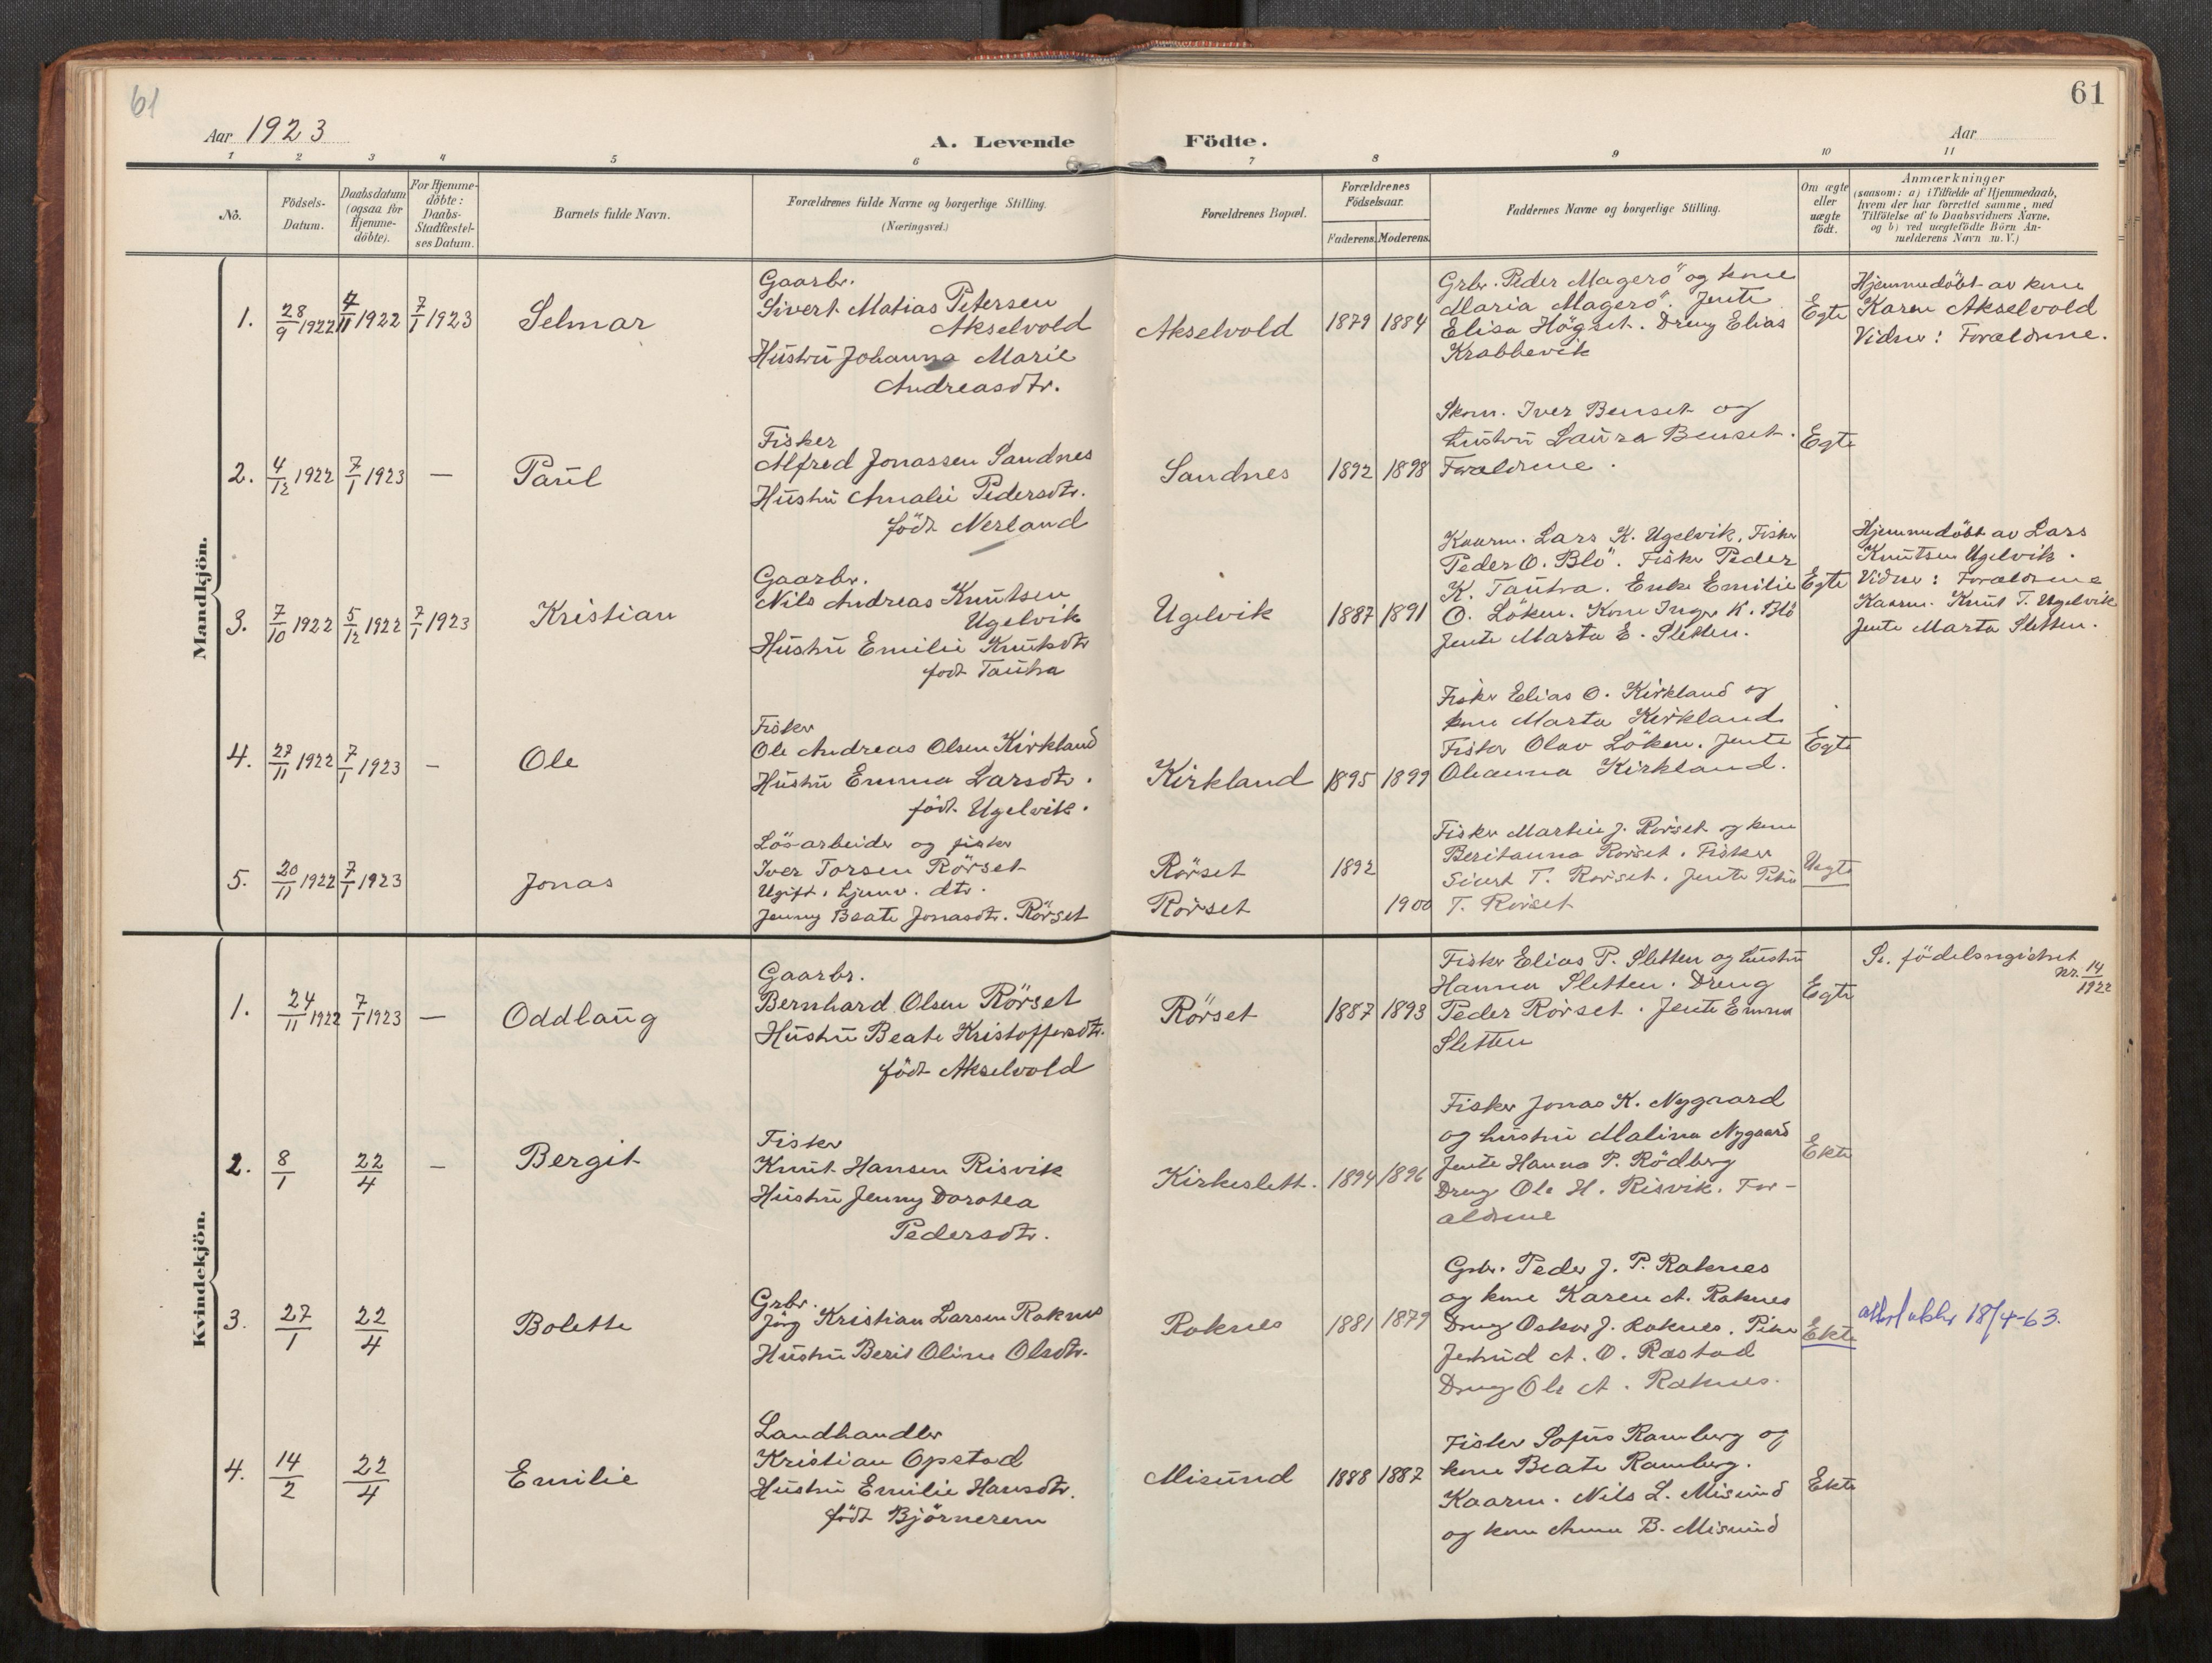 61
61
Aar 1923
A. Levende Födte.
Aar
1 2 3 4 5 6 7 8 9 10 11
No.
Födsels-
Datum.
Daabsdatum
(ogsaa for
Hjemme-
döbte).
For Hjemme-
döbte:
Daabs-
Stadfæstel-
ses Datum.
Barnets fulde Navn.
Forældrenes fulde Navne og borgerlige Stilling.
(Næringsvei.)
Forældrenes Bopæl.
Forældrenes
Födselsaar.
Faderens. Moderens.
Faddernes Navne og borgerlige Stilling.
Om ægte
eller
uægte
födt.
Anmærkninger
(saasom: a) i Tilfælde af Hjemmedaab,
hvem der har forrettet samme, med
Tilföielse af to Daabsvidners Navne.
og b) ved uægtefödte Börn An-
melderens Navn m. V.)
Mandkjön.
1. 28/9 1922 4/11 1922 7/1 1923 Selmar
Gaarbr.
Sivert Matias Petersen
Akselvold
Hustru Johanna Marie
Andreasdtr.
Akselvold 1879 1884
Grbr. Peder Magerö og kone
Maria Magerö. Jente
Elisa Högset. Dreng Elias
Krabbevik
Egte
Hjemmedöbt av kone
Karen Akselvold
Vidner: Forældrene.
2. 4/12 1922 7/1 1923 — Paul
Fisker
Alfred Jonassen Sandnes
Hustru Amalie Pedersdtr.
födt Nerland
Sandnes 1892 1898
Skom. Iver Benset og
hustru Laura Benset.
Forældrene.
Egte
3. 7/10 1922 5/12 1922 7/1 1923 Kristian
Gaarbr.
Nils Andreas Knutsen
Ugelvik
Hustru Emilie Knutsdtr
födt Tautra
Ugelvik 1887 1891
Kaarm. Lars K. Ugelvik. Fisker
Peder O. Blö. Fisker Peder
K. Tautra. Enke Emilie
O. Löken. Kone Inger K. Blö
Jente Marta E. Sletten.
Egte
Hjemmedöbt av Lars
Knutsen Ugelvik.
Vidner: Forældrene
Kaarm. Knut T. Ugelvik
Jente Marta Sletten.
4. 27/11 1922 7/1 1923 — Ole
Fisker
Ole Andreas Olsen Kirkland
Hustru Emma Larsdtr.
födt Ugelvik.
Kirkland 1895 1899
Fisker Elias O. Kirkland og
kone Marta Kirkland
Fisker Olav Löken. Jente
Oleanna Kirkland.
Egte
5. 20/11 1922 7/1 1923 Jonas
Lösarbeider og fisker
Iver Torsen Rörset
Ugift, hjemv. dtr.
Jenny Beate Jonasdtr. Rörset
Rörset 1892
Rörset 1900
Fisker Martin J. Rörset og kone
Beritanna Rörset. Fisker
Sivert T. Rörset. Jente Petra
T. Rörset
Uegte
Kvindekjön.
1. 24/11 1922 7/1 1923 — Oddlaug
Gaarbr.
Bernhard Olsen Rörset
Hustru Beate Kristoffersdtr.
födt Akselvold
Rörset 1887 1893
Fisker Elias P. Sletten og hustru
Hanna Sletten. Dreng
Peder Rörset. Jente Emma
Sletten
Egte
Se. födelsregistret
nr. 14
1922
2. 8/1 22/4 — Bergit
Fisker
Knut Hansen Risvik
Hustru Jenny Dorotea
Pedersdtr.
Kirkeslett. 1894 1896
Fisker Jonas K. Nygaard
og hustru Malina Nygaard
Jente Hanna P. Rödberg
Dreng Ole H. Risvik. For-
ældrene
Ekte
3. 27/1 22/4 Bolette
Grbr.
Jörg Kristian Larsen Raknes
Hustru Berit Oline Olsdtr.
Raknes 1881 1879
Grbr. Peder J. P. Raknes
og kone Karen A. Raknes
Dreng Oskar J. Raknes. Pike
Jertrud A. O. Rastad
Dreng Ole A. Raknes.
Ekte
18/4-63.
4. 14/2 22/4 Emilie
Landhandler
Kristian Opstad
Hustru Emilie Hansdtr.
födt Björnerem
Misund 1888 1887
Fisker Sofus Ramberg og
kone Beate Ramberg.
Kaarm. Nils L. Misund
og kone Anna B. Misund
Ekte